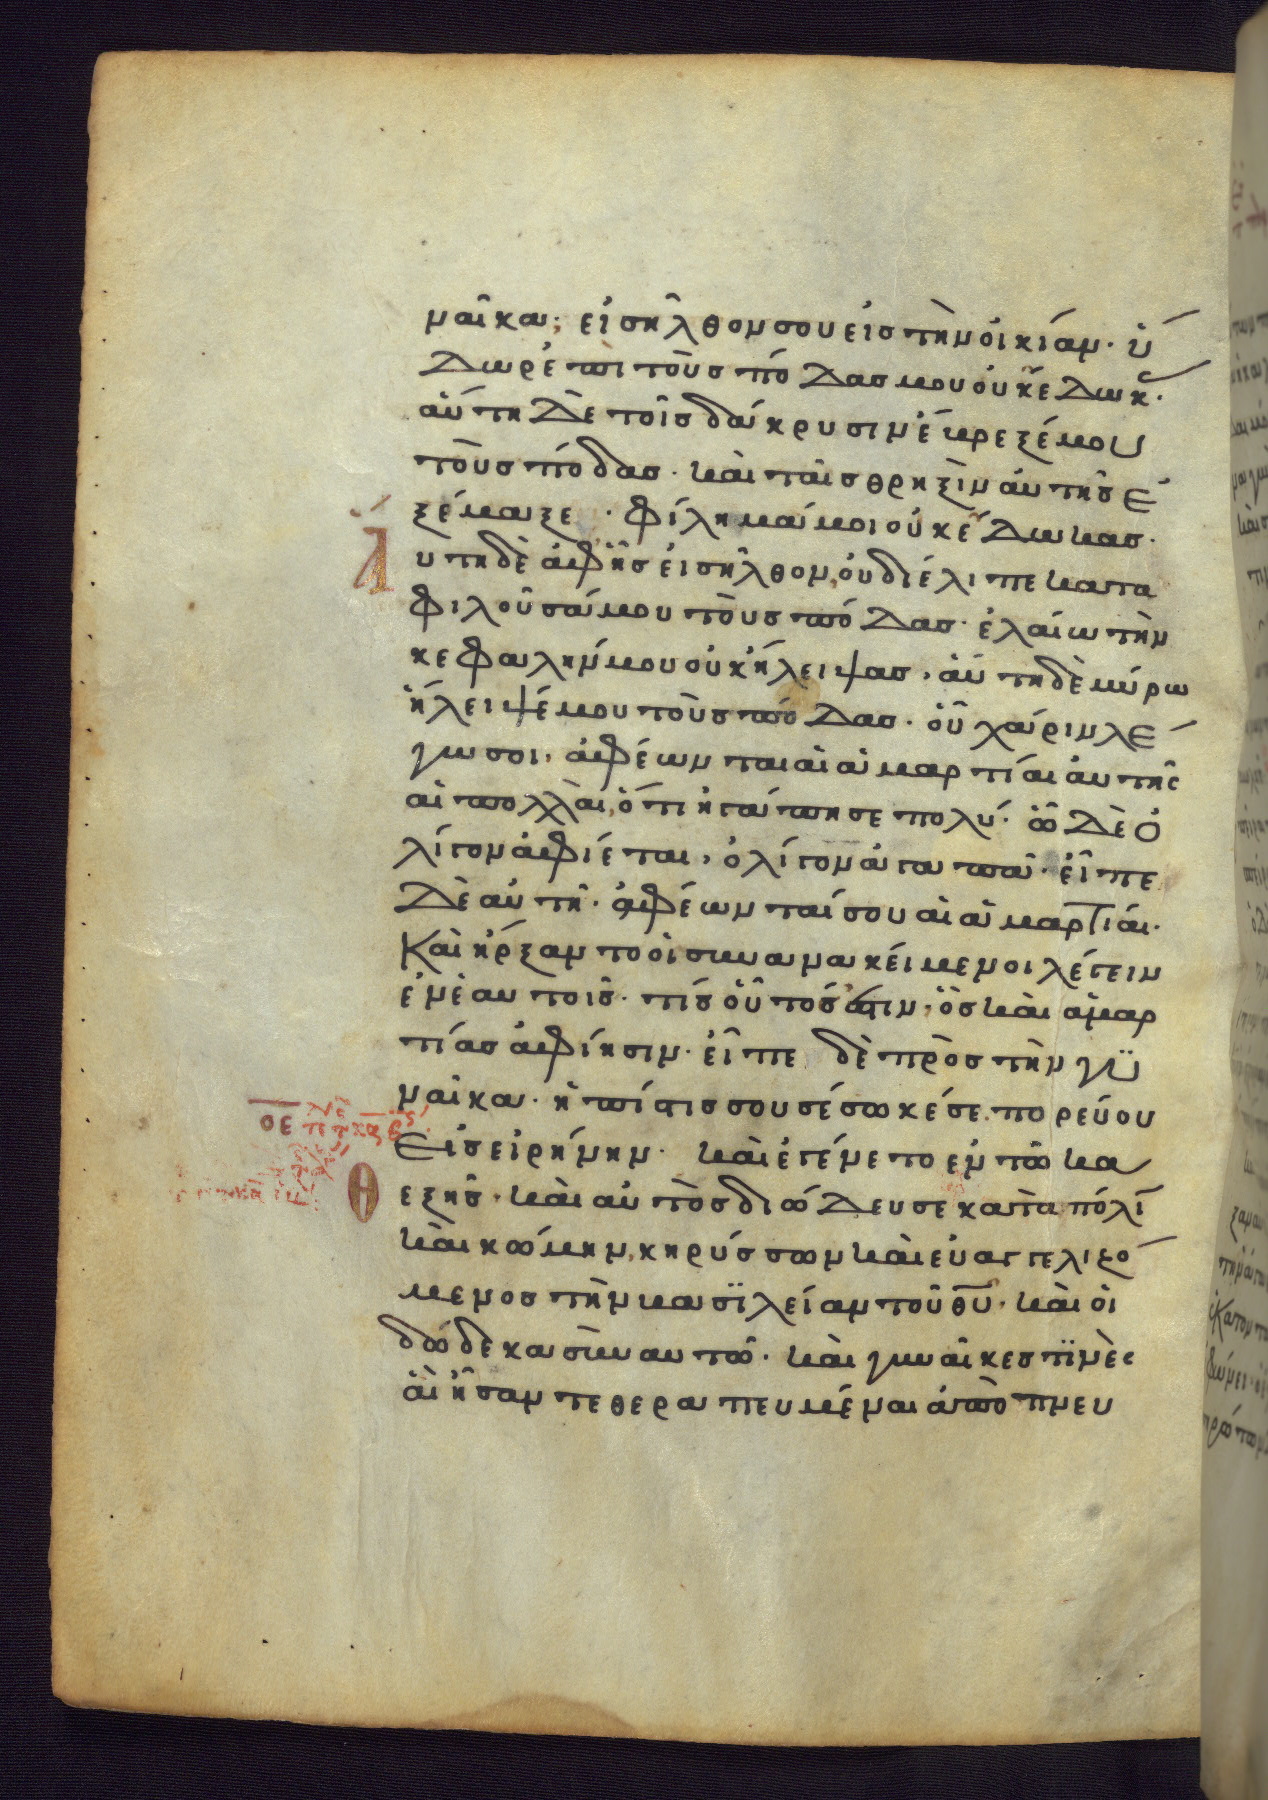 ναῖκα; εἰσῆλθον σου εἰς τὴν οἰκίαν· ὕ
δωρ ἐπὶ τοὺς πόδας μου οὐκ ἔδωκ·
αὕτη δὲ τοῖς δάκρυσιν ἔβρεξέ μου
τοὺς πόδας· καὶ ταῖς θρηξὶν αὐτῆς ἐ
ξέμαξε· φίλημά μοι οὐκ ἔδωκας·
ἁ
ὕτη δὲ ἀφῆς εἰσῆλθον, οὐ διέλιπε κατα
φιλοῦσά μου τοὺς πόδας· ἐλαίω τὴν
κεφαλήν μου οὐκ ἤλειψας, αὕτη δὲ μύρω
ἤλειψέ μου τοὺς πόδας· οὗ χάριν λέ
γω σοι, ἀφέωνται αἱ ἁμαρτίαι αὐτῆς
αἱ πολλαὶ, ὅτι ἠγάπησε πολύ· ὧ δὲ ὀ
λίγον ἀφίεται, ὀλίγον ἀγαπᾶ· εἶπε
δὲ αὐτῆ· ἀφέωνταί σου αἱ ἁμαρτίαι·
Καὶ ἤρξαντο οἱ συνανακείμενοι λέγειν
ἐν ἑαυτοῖς· τίς οὗτός ἐστιν, ὃς καὶ ἁμαρ
τίας ἀφίησιν· εἶπε δὲ πρὸς τὴν γυ
ναῖκα· ἡ πίστις σου σέσωκέ σε. πορεύου
οε
εἰς εἰρήνην· καὶ ἐγένετο ἐν τῶ κα
θ
εξῆς· καὶ αὐτὸς διώδευσε κατὰ πόλϊ
καὶ κώμην, κηρύσσων καὶ εὐαγγελιζό
μενος τὴν βασϊλείαν τοῦ θυ· καὶ οἱ
δώδεκα σὺν αὐτῶ· καὶ γυναῖκες τϊνὲς
αἳ ἦσαν τεθεραπευμέναι ἀπὸ πνευ